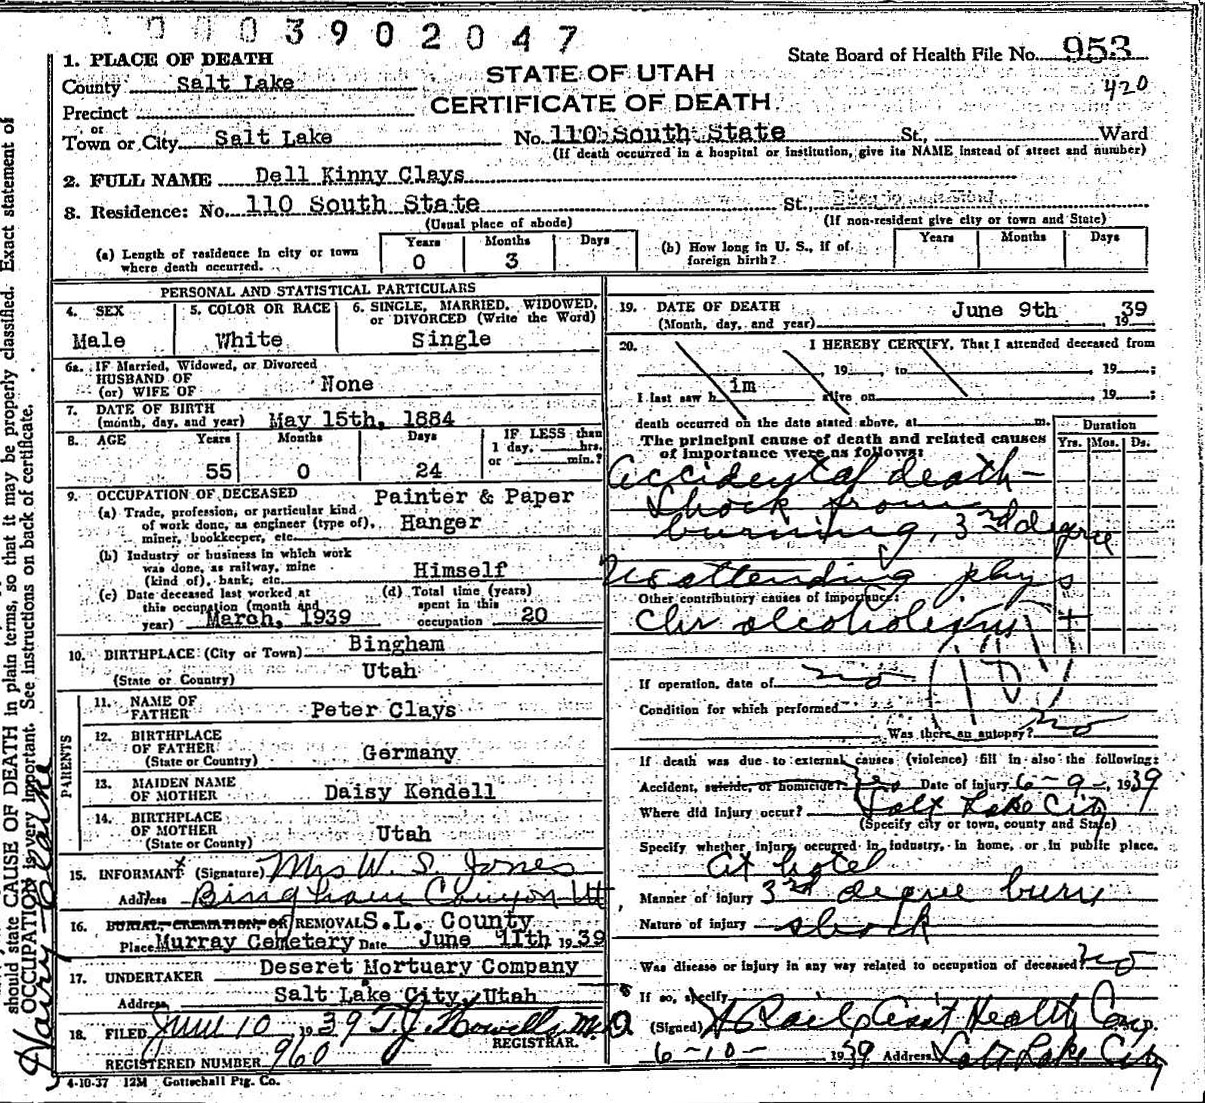 0003902047
State Board of Health File No. 953
420
1. PLACE OF DEATH
STATE OF UTAH
CERTIFICATE OF DEATH
County Salt Lake
Precinct
or
Town or City Salt Lake No. 110 South State St., Ward
(If death occurred in a hospital or institution, give its NAME instead of street and number)
2. FULL NAME Dell Kinny Clays
3. Residence: No. 110 South State St.,
(Usual place of abode) (If non-resident give city or town and State)
(a) Length of residence in city or town where death occurred. Years 0 Months 3 Days
(b) How long in U. S., if of foreign birth? Years Months Days
PERSONAL AND STATISTICAL PARTICULARS
4. SEX Male
5. COLOR OR RACE White
6. SINGLE, MARRIED, WIDOWED, or DIVORCED (Write the Word) Single
6a. IF Married, Widowed, or Divorced
HUSBAND OF
(or) WIFE OF None
7. DATE OF BIRTH
(month, day, and year) May 15th, 1884
8. AGE Years 55 Months 0 Days 24 IF LESS than 1 day, hrs. or min.?
9. OCCUPATION OF DECEASED Painter & Paper
(a) Trade, profession, or particular kind of work done, as engineer (type of), miner, bookkeeper, etc. Hanger
(b) Industry or business in which work was done, as railway, mine (kind of), bank, etc. Himself
(c) Date deceased last worked at this occupation (month and year) March, 1939
(d) Total time (years) spent in this occupation 20
10. BIRTHPLACE (City or Town) Bingham
(State or Country) Utah
PARENTS
11. NAME OF FATHER Peter Clays
12. BIRTHPLACE OF FATHER (State or Country) Germany
13. MAIDEN NAME OF MOTHER Daisy Kendell
14. BIRTHPLACE OF MOTHER (State or Country) Utah
15. INFORMANT (Signature) Mrs W. S. Jones
Address Bingham Canyon Ut
16. BURIAL, CREMATION, OR REMOVAL S.L. County
Place Murray Cemetery Date June 11th 1939
17. UNDERTAKER Deseret Mortuary Company
Address Salt Lake City, Utah
18. FILED June 10, 1939 T. J. Howells, M.D.
REGISTRAR.
REGISTERED NUMBER 960
4-10-37 12M Gottschall Ptg. Co.
19. DATE OF DEATH
(Month, day, and year) June 9th 1939
20. I HEREBY CERTIFY, That I attended deceased from
, 19 , to , 19 ;
I last saw him alive on , 19 ;
death occurred on the date stated above, at m.
The principal cause of death and related causes of importance were as follows:
Duration
Yrs. Mos. Ds.
Accidental death—
Shock from
burning, 3rd degree
No attending phys
Other contributory causes of importance:
Chr alcoholism +
If operation, date of no
Condition for which performed
Was there an autopsy? no
If death was due to external causes (violence) fill in also the following:
Accident, suicide, or homicide? yes Date of injury 6-9-, 1939
Where did injury occur? Salt Lake City
(Specify city or town, county and State)
Specify whether injury occurred in industry, in home, or in public place.
At hotel
Manner of injury 3rd degree burn
Nature of injury shock
Was disease or injury in any way related to occupation of deceased? no
If so, specify
(Signed) Asst Health Com.
6-10- 1939 Address Salt Lake City
should state CAUSE OF DEATH in plain terms, so that it may be properly classified. Exact statement of
OCCUPATION is very important. See instructions on back of certificate.